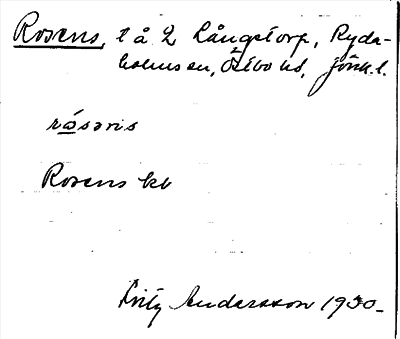 Rosens, t å 2 Långstorp, Ryda-
holms sn, Östbo hd, Jönk. l.
rósəris
Rosens kb
Fritz Andersson 1930